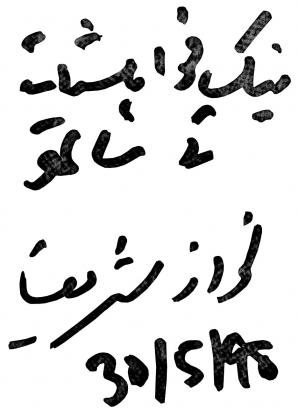 نیک خواہشات
کے ساتھ
نواز شریف
30/5/98